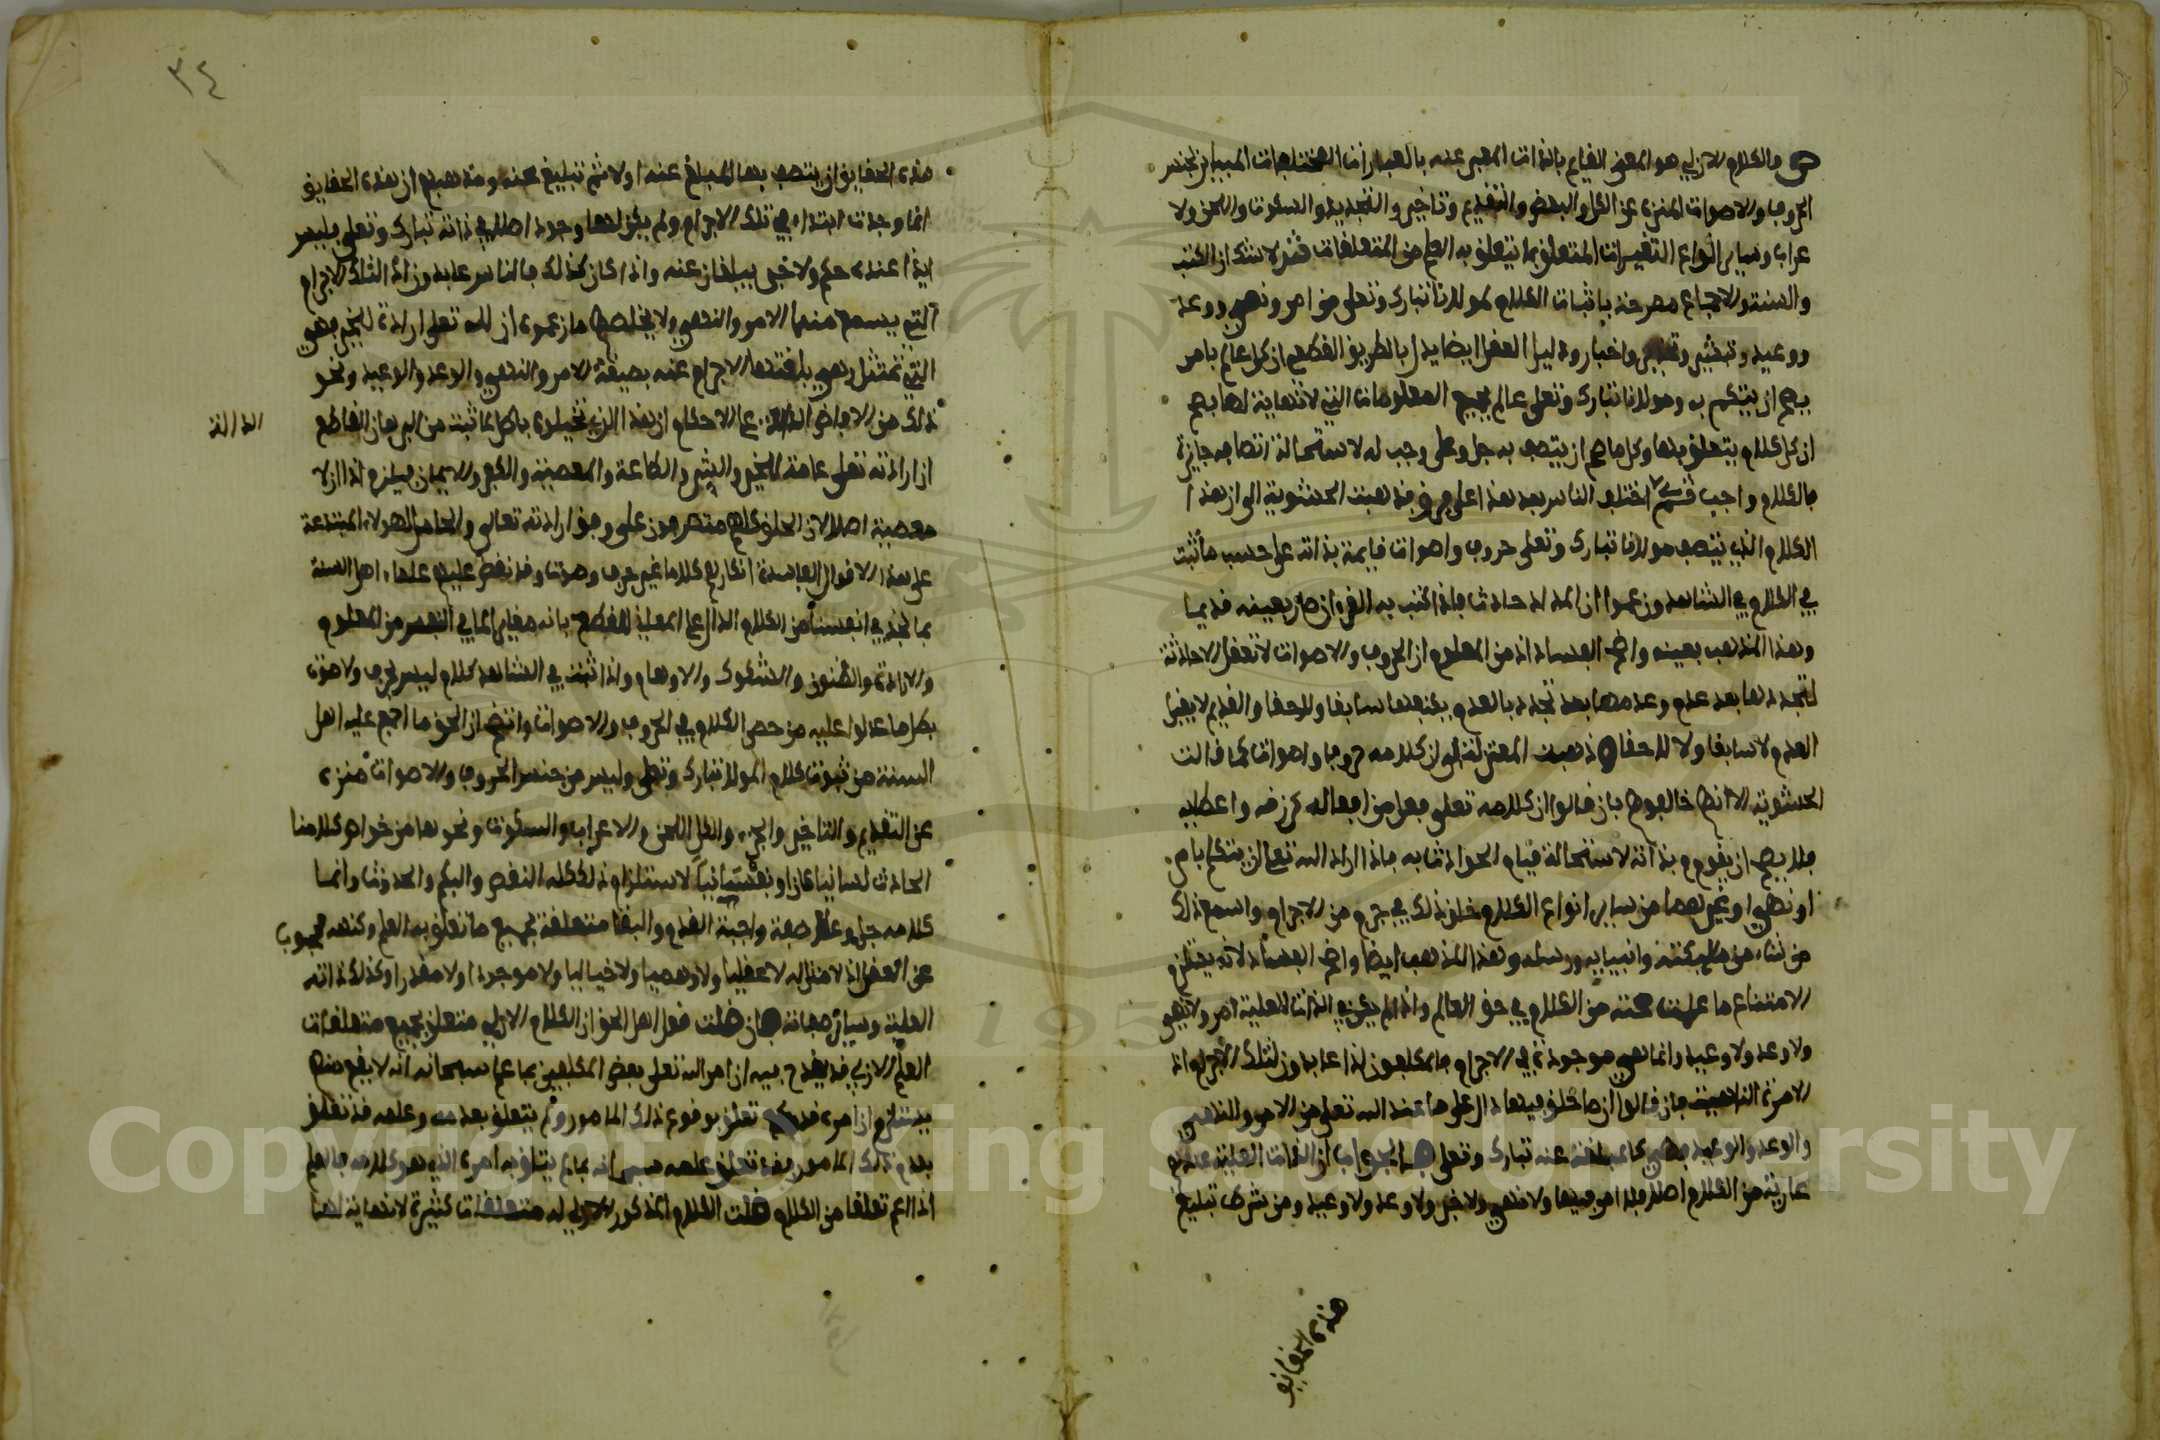 ص والكلام الازلي هو المعنى القايم بالذات المعبر عنه بالعبارات المختلفات المباين لجنس
الحروف والاصوات المنزه عن الكل والبعض والتقديم وتاخير والتجديد والسكوت واللحن ولا
عراب وساير انواع التغيرات المتعلق بما يتعلق به العلم من المتعلقات ش لا شك ان الكتب
والسنة والاجماع مصرحة باثبات الكلام لمولانا تبارك وتعلى من امر ونهي ووعد
ووعيد وتبشير وتحذير واخبار ودليل العقل ايضا يدل بالطريق القطعي ان كل عالم بامر
يصح ان يتكلم به ومولانا تبارك وتعلى عالم بجميع المعلومات التي لا نهاية لها يصح
ان كل كلام يتعلق بها وكل ما صح ان يتصف به جل وعلى وجب له لاستحالة اتصافه بجايز
فالكلام واجب ثم اختلف الناس بعد هذا على فرق فذهبت الحشوية الى ان هذا
الكلام الذي يتصف مولانا تبارك وتعلى حروف واصوات قايمة بذاته على حسب ما ثبت
في الكلام في الشاهد وزعموا ان المداد حادث فاذا كتب به القرءان صار بعينه قديما
وهذا المذهب بعينه واضح الفساد اذ من المعلوم ان الحروف والاصوات لا تعقل الا حادثة
لتجددها بعد عدم وعدمها بعد تجدد فالعدم يكتنفها سابقا ولاحقا والقديم لا يقبل
العدم لا سابقا ولا لاحقا وذهبت المعتزلة الى ان كلامه حروف واصوات كما قالت
الحشوية الا انها خالفوها بان قالوا ان كلامه تعلى فعل من افعاله كرزقه واعطايه
فلا يصح ان يقوم بذاته لاستحالة قيام الحوادث به فاذا اراد الله تعلى ان يتكلم بامر
او نهي او غيرهما من ساير انواع الكلام خلق ذلك في جرم من الاجرام واسمع ذلك
من شاء من ملايكته وانبيايه ورسله وهذا المذهب ايضا واضح الفساد لانه يستلزم
الامتناع ما علمت صحته من الكلام في حق العالم واذا لم يكن في الذات العلية امر ولا نهي
ولا وعد ولا وعيد وانما هي موجودة في الاجرام فالمكلفون اذا عابدون لتلك الاجرام اذ
الامرة الناهية فان قالوا ان ما خلق فيها دال على ما عند الله تعلى من الامر والنهي
والوعد والوعيد فهي كالمبلغة عنه تبارك وتعلى فالجواب ان الذات العلية عندهم
عارية من الكلام اصلا فلا امر فيها ولا نهي ولا خبر ولا وعد ولا وعيد ومن شرط تبليغ
هذه الحقايق
٣٤
هذه الحقايق ان يتصف بها المبلغ عنه اولا ثم تبليغ عنه ومذهبهم ان هذه الحقايق
انما وجدت ابتداء في تلك الاجرام ولم يكن لها وجود اصلا في ذاته تبارك وتعلى فليس
اذا عنده حكم ولا خبر يبلغان عنه واذا كان كذلك فالناس عابدون اذا لتلك الاجرام
التي يسمع منها الامر والنهي ولا يخلصهم ما زعموه ان لله تعلى ارادة للخير فهي
التي تمتثل وهي بلغتها الاجرام عنه بصيغة الامر والنهي والوعد والوعيد ونحو
ذلك من الالفاظ الدالة على الاحكام ان هذا الذي تخيلوه باطل لما ثبت من البرهان القاطع
الدالة
ان ارادته تعلى عامة للخير والشر والطاعة والمعصية والكفر والايمان فيلزم اذا ان لا
معصية اصلا لان الخلق كلهم متصرفون على وفق ارادته تعالى والحامل لهؤلاء المبتدعة
على هذه الاقوال الفاسدة انكارهم كلاما غير حرف وصوت وقد نقض عليهم علماء اهل السنة
بما نجده في انفسنا من الكلام الدال على المعاني القطع بانه مغاير لما في النفس من العلوم
والارادة والظنون والشكوك والاوهام واذا ثبت في الشاهد كلام ليس بحرف ولا صوت
بطل ما عولوا عليه من حصر الكلام في الحروف والاصوات واتضح ان الحق ما اجمع عليه اهل
السنة من ثبوت كلام المولى تبارك وتعلى وليس من جنس الحروف والاصوات منزه
عن التقديم والتاخير والجزء والكل اللحن والاعراب والسكوت ونحوها من خواص كلامنا
الحادث لسانيا كان او نفسانيا لاستلزام ذلك كله النقص والبكم والحدوث وانما
كلامه جل وعلى صفة واجبة القدم والبقا متعلقة بجميع ما تعلق به العلم وكنهه محجوب
عن العقل اذ لا مثل له لا عقليا ولا وهميا ولا خياليا ولا موجودا ولا مقدرا وكذلك ذاته
العلية وساير صفاته فان قلت قول اهل الحق ان الكلام الازلي متعلق بجميع متعلقات
العلم الازلي قد يقدح فيه ان امر الله تعلى بعض المكلفين بما علم سبحانه انه لا يقع منهم
يستلزم ان امره قد تعلق بوقوع ذلك المامور ولم يتعلق بعدمه وعلمه قد تعلق
بعدم ذلك المامور فقد تعلق علمه سبحانه بما لم يتعلق به امره الذي هو كلامه فالعلم
اذا اعم تعلقا من الكلام قلت الكلام المذكور الازلي له متعلقات كثيرة لا نهاية لها